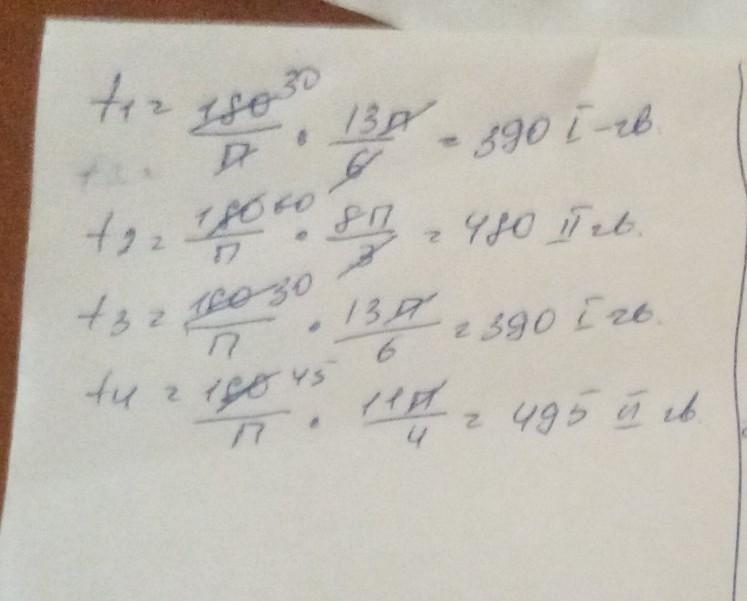 t1 = 180 30 / П · 13П / 6 = 390 I-чв.
t2 = 180 60 / П · 8П / 3 = 480 II чв.
t3 = 180 30 / П · 13П / 6 = 390 I чв.
t4 = 180 45 / П · 11П / 4 = 495 II чв